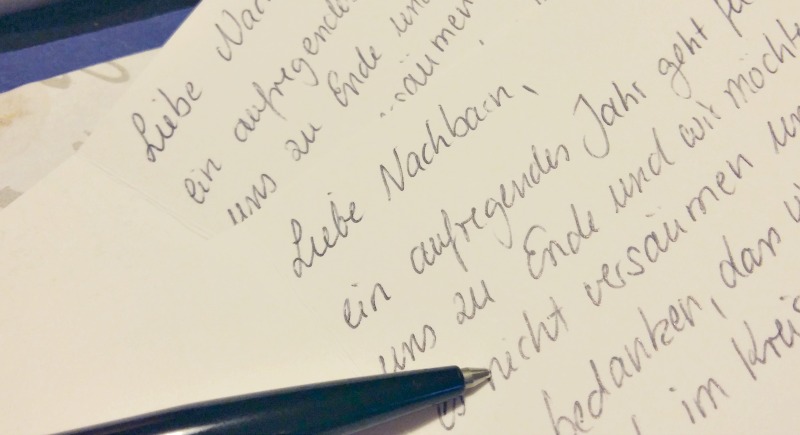 Liebe
ein aufregendes
uns zu Ende und
Liebe Nachbarn,
ein aufregendes Jahr geht für
uns zu Ende und wir möchten
es nicht versäumen
bedanken, dass
im